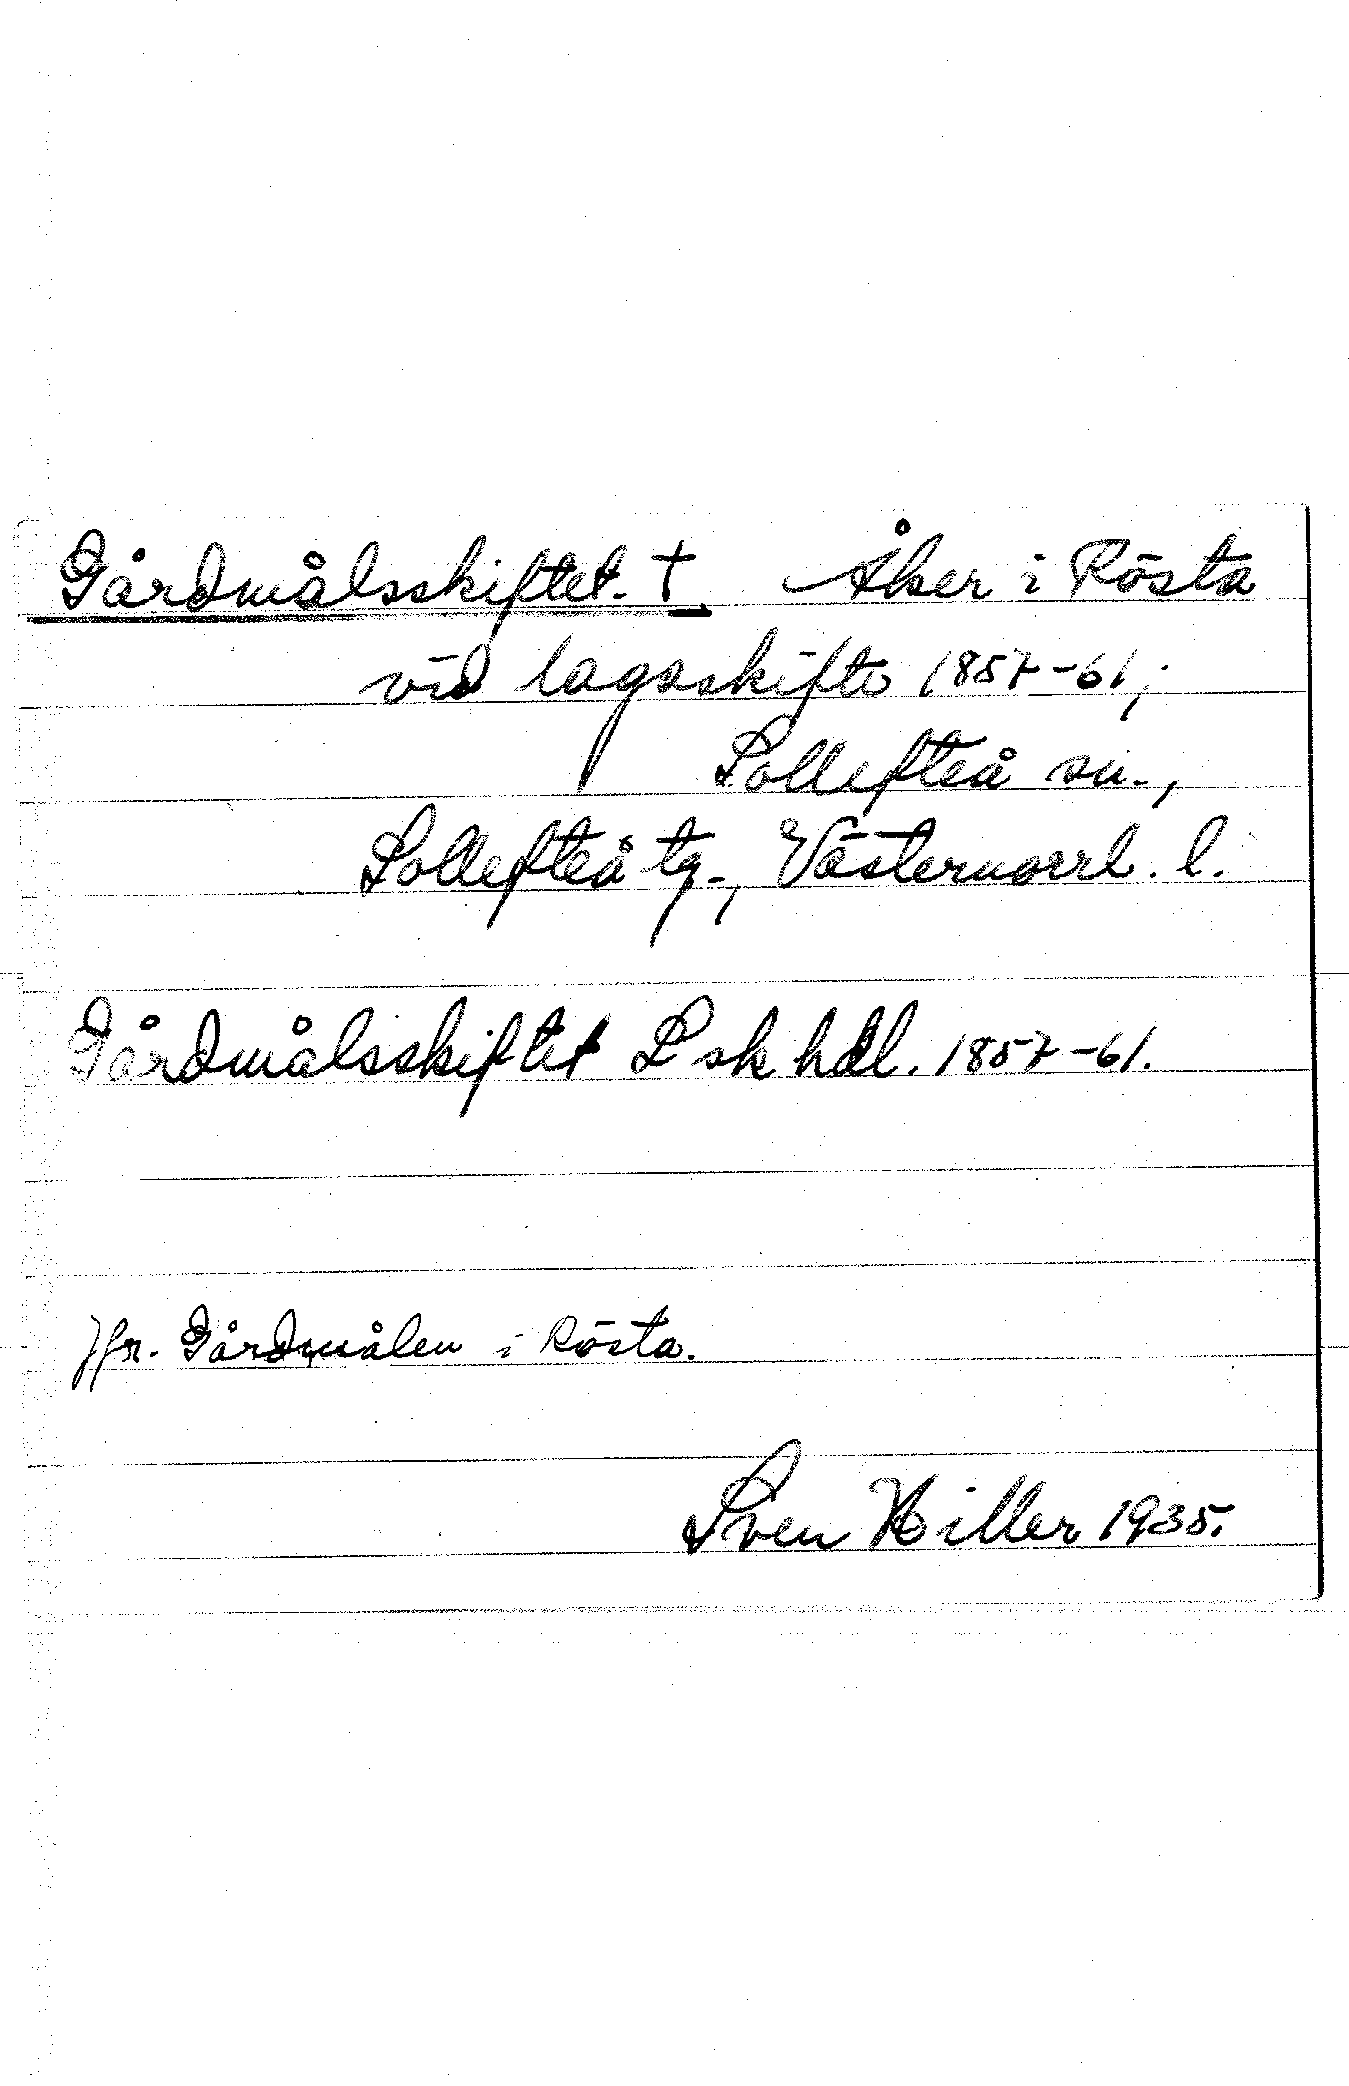 Gårdmålsskiftet. † Åker i Rösta
vid lagaskifte 1857-61;
Sollefteå sn.,
Sollefteå tg., Västernorrl. l.
Gårdmålsskiftet L sk hdl. 1857-61.
Jfr. Gårdmålen i Rösta.
Sven Hiller 1935.